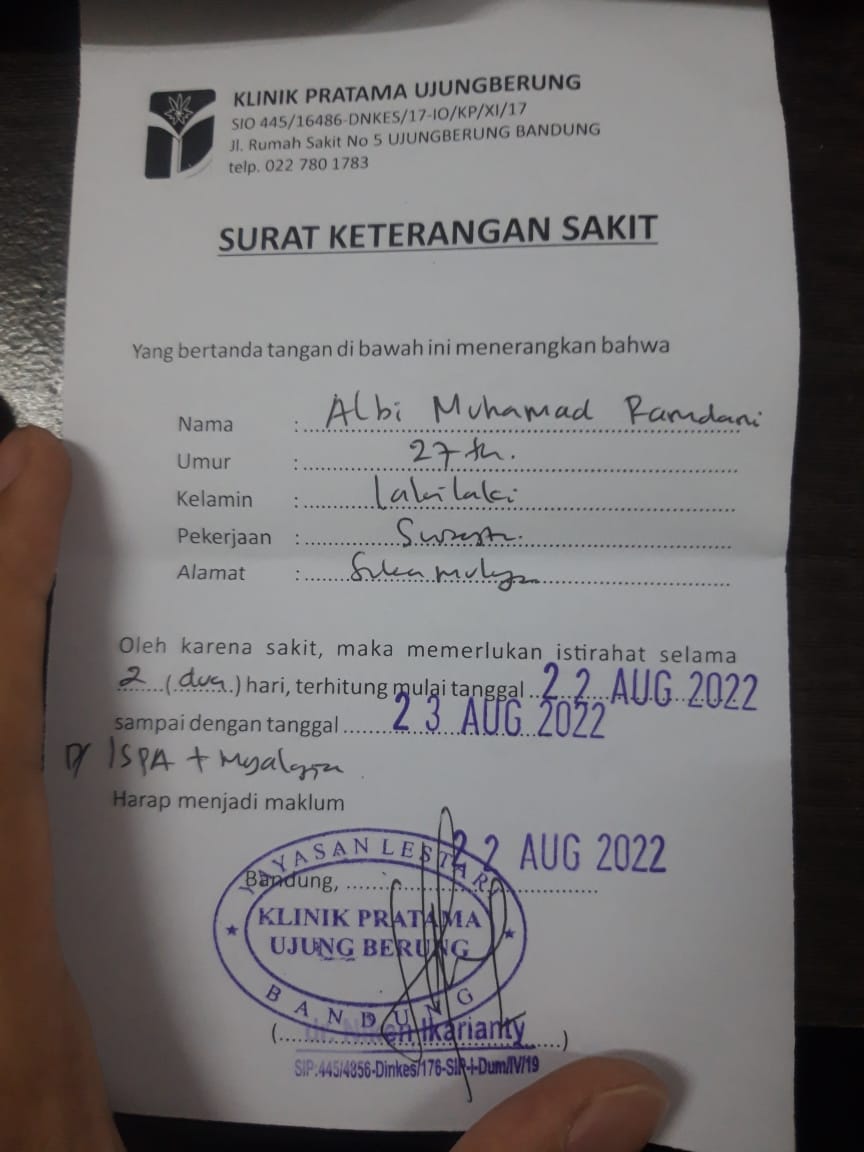 KLINIK PRATAMA UJUNGBERUNG
SIO 445/16486-DNKES/17-IO/KP/XI/17
Jl. Rumah Sakit No 5 UJUNGBERUNG BANDUNG
telp. 022 780 1783
SURAT KETERANGAN SAKIT
Yang bertanda tangan di bawah ini menerangkan bahwa
Nama : Albi Muhamad Ramdani
Umur : 27 th.
Kelamin : Laki laki
Pekerjaan :
Alamat : Suka mulya
Oleh karena sakit, maka memerlukan istirahat selama
2 (dua) hari, terhitung mulai tanggal 22 AUG 2022
sampai dengan tanggal 23 AUG 2022
D/ ISPA + Myalgia
Harap menjadi maklum
Bandung, 22 AUG 2022
YAYASAN LESTARI
KLINIK PRATAMA
UJUNG BERUNG
BANDUNG
(dr. Ikarianty)
SIP:445/4856-Dinkes/176-SIP-I-Dum/IV/19